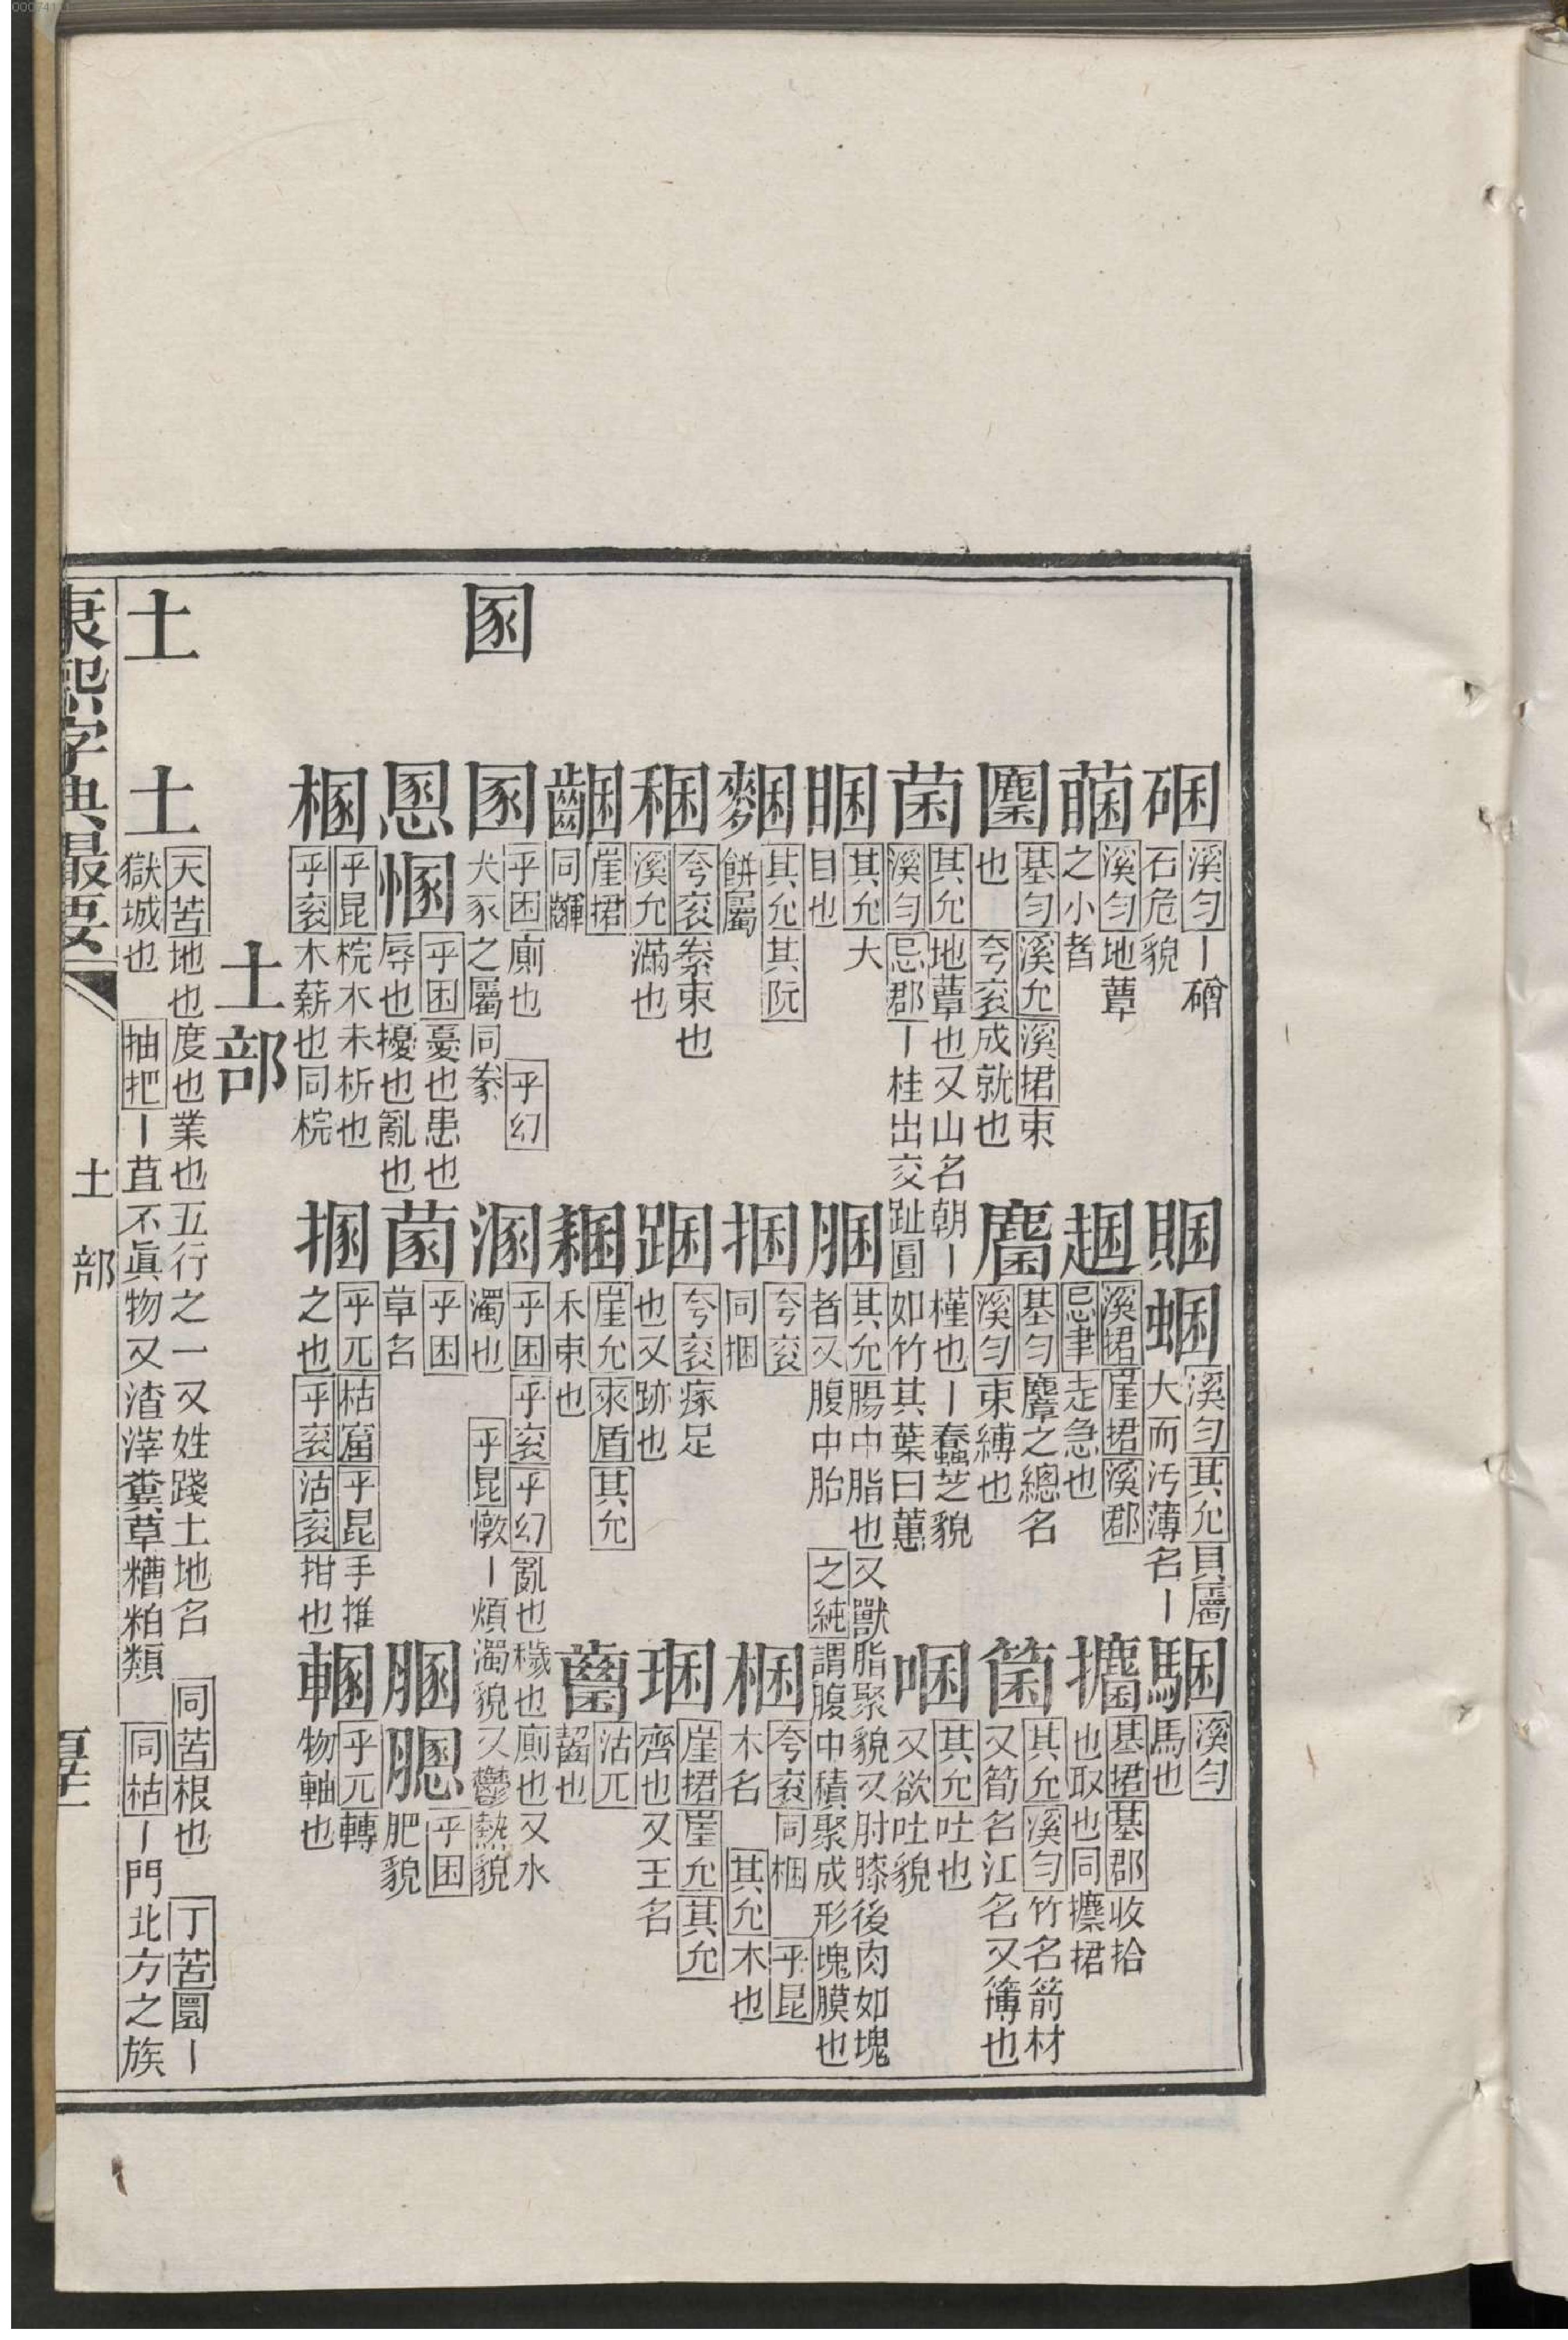 碅溪勻丨磳石危貌
䐃
溪勻其允貝屬大而汚薄名丨
溪勻馬也
溪勻地蕈之小者
溪捃崖捃溪郡忌聿走急也
攟基捃基郡收拾也取也同攈捃
基勻溪允溪捃束也夸衮成就也
麕基勻麞之總名溪勻束縛也
箘其允溪勻竹名箭材又筍名江名又簙也
菌其允地蕈也又山名朝丨槿也丨蠢芝貌溪勻忌郡丨桂出交趾圓如竹其葉曰蕙
其允吐也又欲吐貌
其允大目也
䐃其允腸中脂也又獸脂聚貌又肘膝後肉如塊者又腹中胎之純謂腹中積聚成形塊膜也
其允其阮餅屬
捆夸衮同捆
梱夸衮同梱乎昆木名其允木也
稇夸衮絭束也溪允滿也
夸衮瘃足也又跡也
崖捃崖允其允齊也又王名
崖捃同齫
崖允來盾其允禾束也
沽兀齧也
圂
圂乎困廁也乎幻犬豕之屬同豢
溷乎困乎衮乎幻亂也穢也廁也又水濁也乎昆憞丨煩濁貌又鬱熱貌
慁
乎困憂也患也辱也擾也亂也
乎困草名
乎困肥貌
乎昆梡木未析也乎衮木薪也同梡
乎兀枯窟乎昆手推之也乎衮沽衮抇也
乎兀轉物軸也
土部
土
土天苦地也度也業也五行之一又姓踐土地名同苦根也丁苦圜丨
獄城也抽把丨苴不眞物又渣滓糞草糟粕類同枯丨門北方之族
康熙字典最要
土部